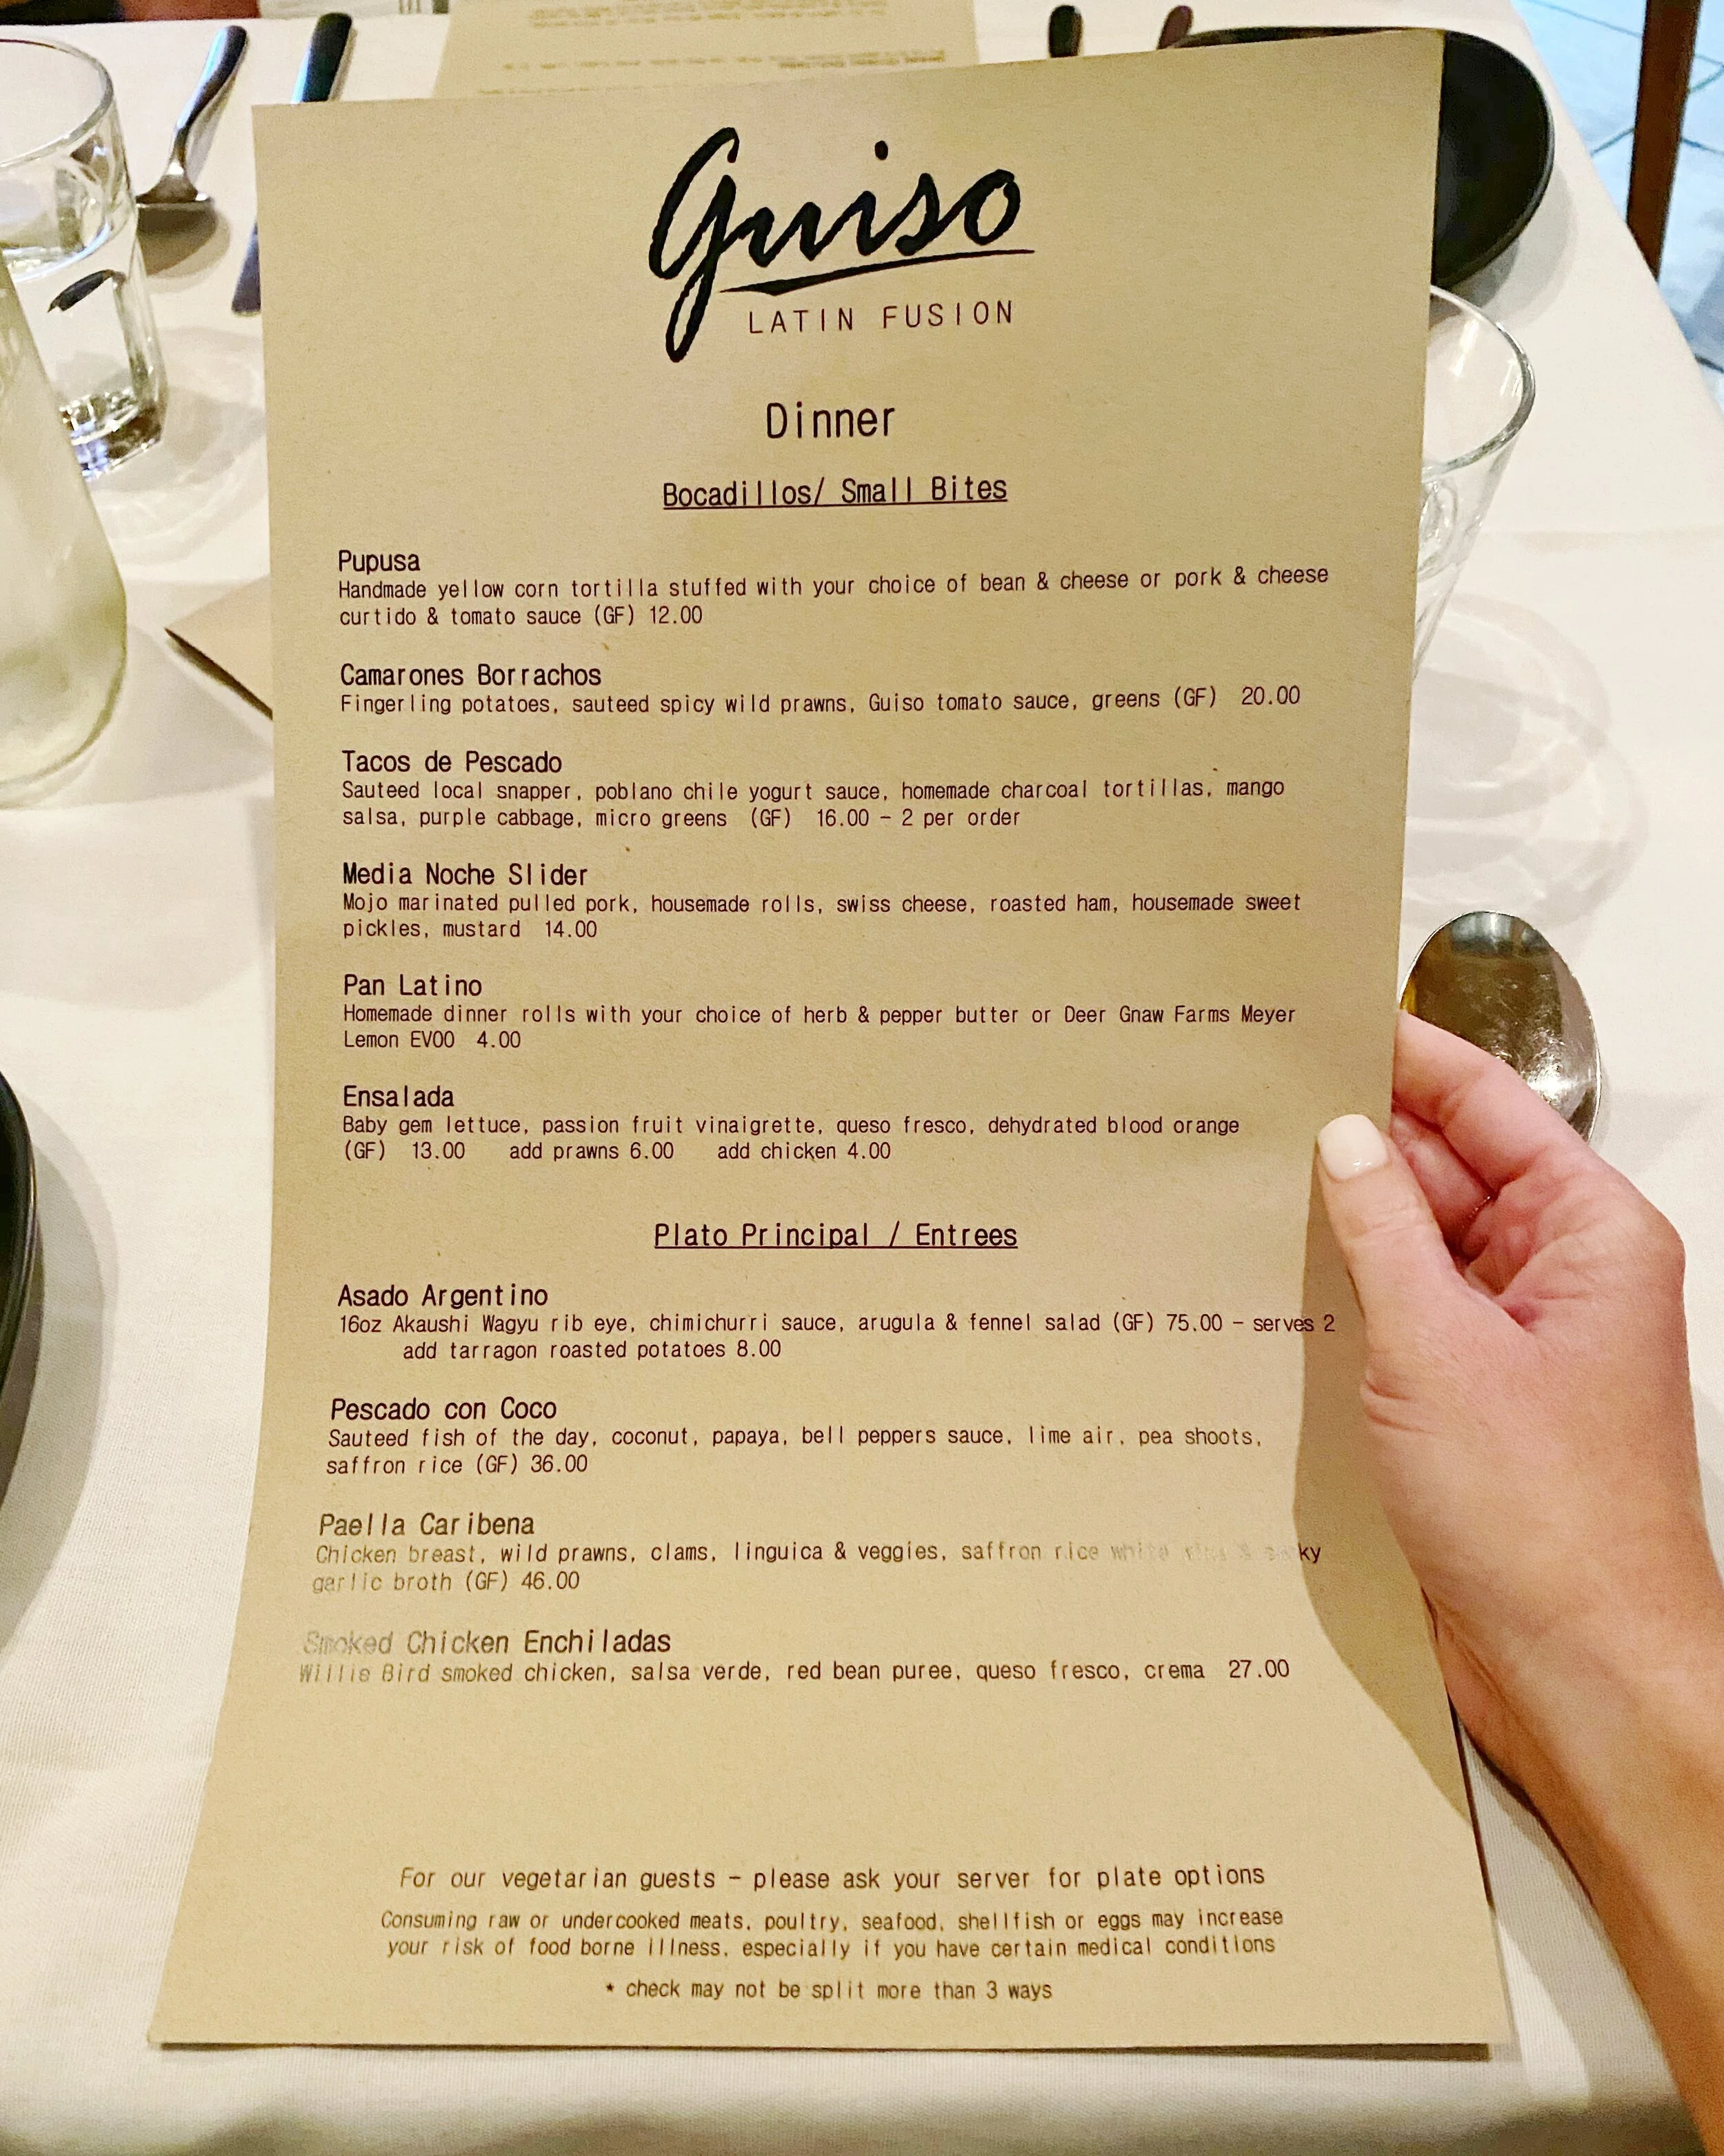 Guiso
LATIN FUSION
Dinner
Bocadillos/ Small Bites
Pupusa
Handmade yellow corn tortilla stuffed with your choice of bean & cheese or pork & cheese
curtido & tomato sauce (GF) 12.00
Camarones Borrachos
Fingerling potatoes, sauteed spicy wild prawns, Guiso tomato sauce, greens (GF) 20.00
Tacos de Pescado
Sauteed local snapper, poblano chile yogurt sauce, homemade charcoal tortillas, mango
salsa, purple cabbage, micro greens (GF) 16.00 - 2 per order
Media Noche Slider
Mojo marinated pulled pork, housemade rolls, swiss cheese, roasted ham, housemade sweet
pickles, mustard 14.00
Pan Latino
Homemade dinner rolls with your choice of herb & pepper butter or Deer Gnaw Farms Meyer
Lemon EVOO 4.00
Ensalada
Baby gem lettuce, passion fruit vinaigrette, queso fresco, dehydrated blood orange
(GF) 13.00 add prawns 6.00 add chicken 4.00
Plato Principal / Entrees
Asado Argentino
16oz Akaushi Wagyu rib eye, chimichurri sauce, arugula & fennel salad (GF) 75.00 - serves 2
add tarragon roasted potatoes 8.00
Pescado con Coco
Sauteed fish of the day, coconut, papaya, bell peppers sauce, lime air, pea shoots,
saffron rice (GF) 36.00
Paella Caribena
Chicken breast, wild prawns, clams, linguica & veggies, saffron rice white &
garlic broth (GF) 46.00
Smoked Chicken Enchiladas
Willie Bird smoked chicken, salsa verde, red bean puree, queso fresco, crema 27.00
For our vegetarian guests - please ask your server for plate options
Consuming raw or undercooked meats, poultry, seafood, shellfish or eggs may increase
your risk of food borne illness, especially if you have certain medical conditions
* check may not be split more than 3 ways